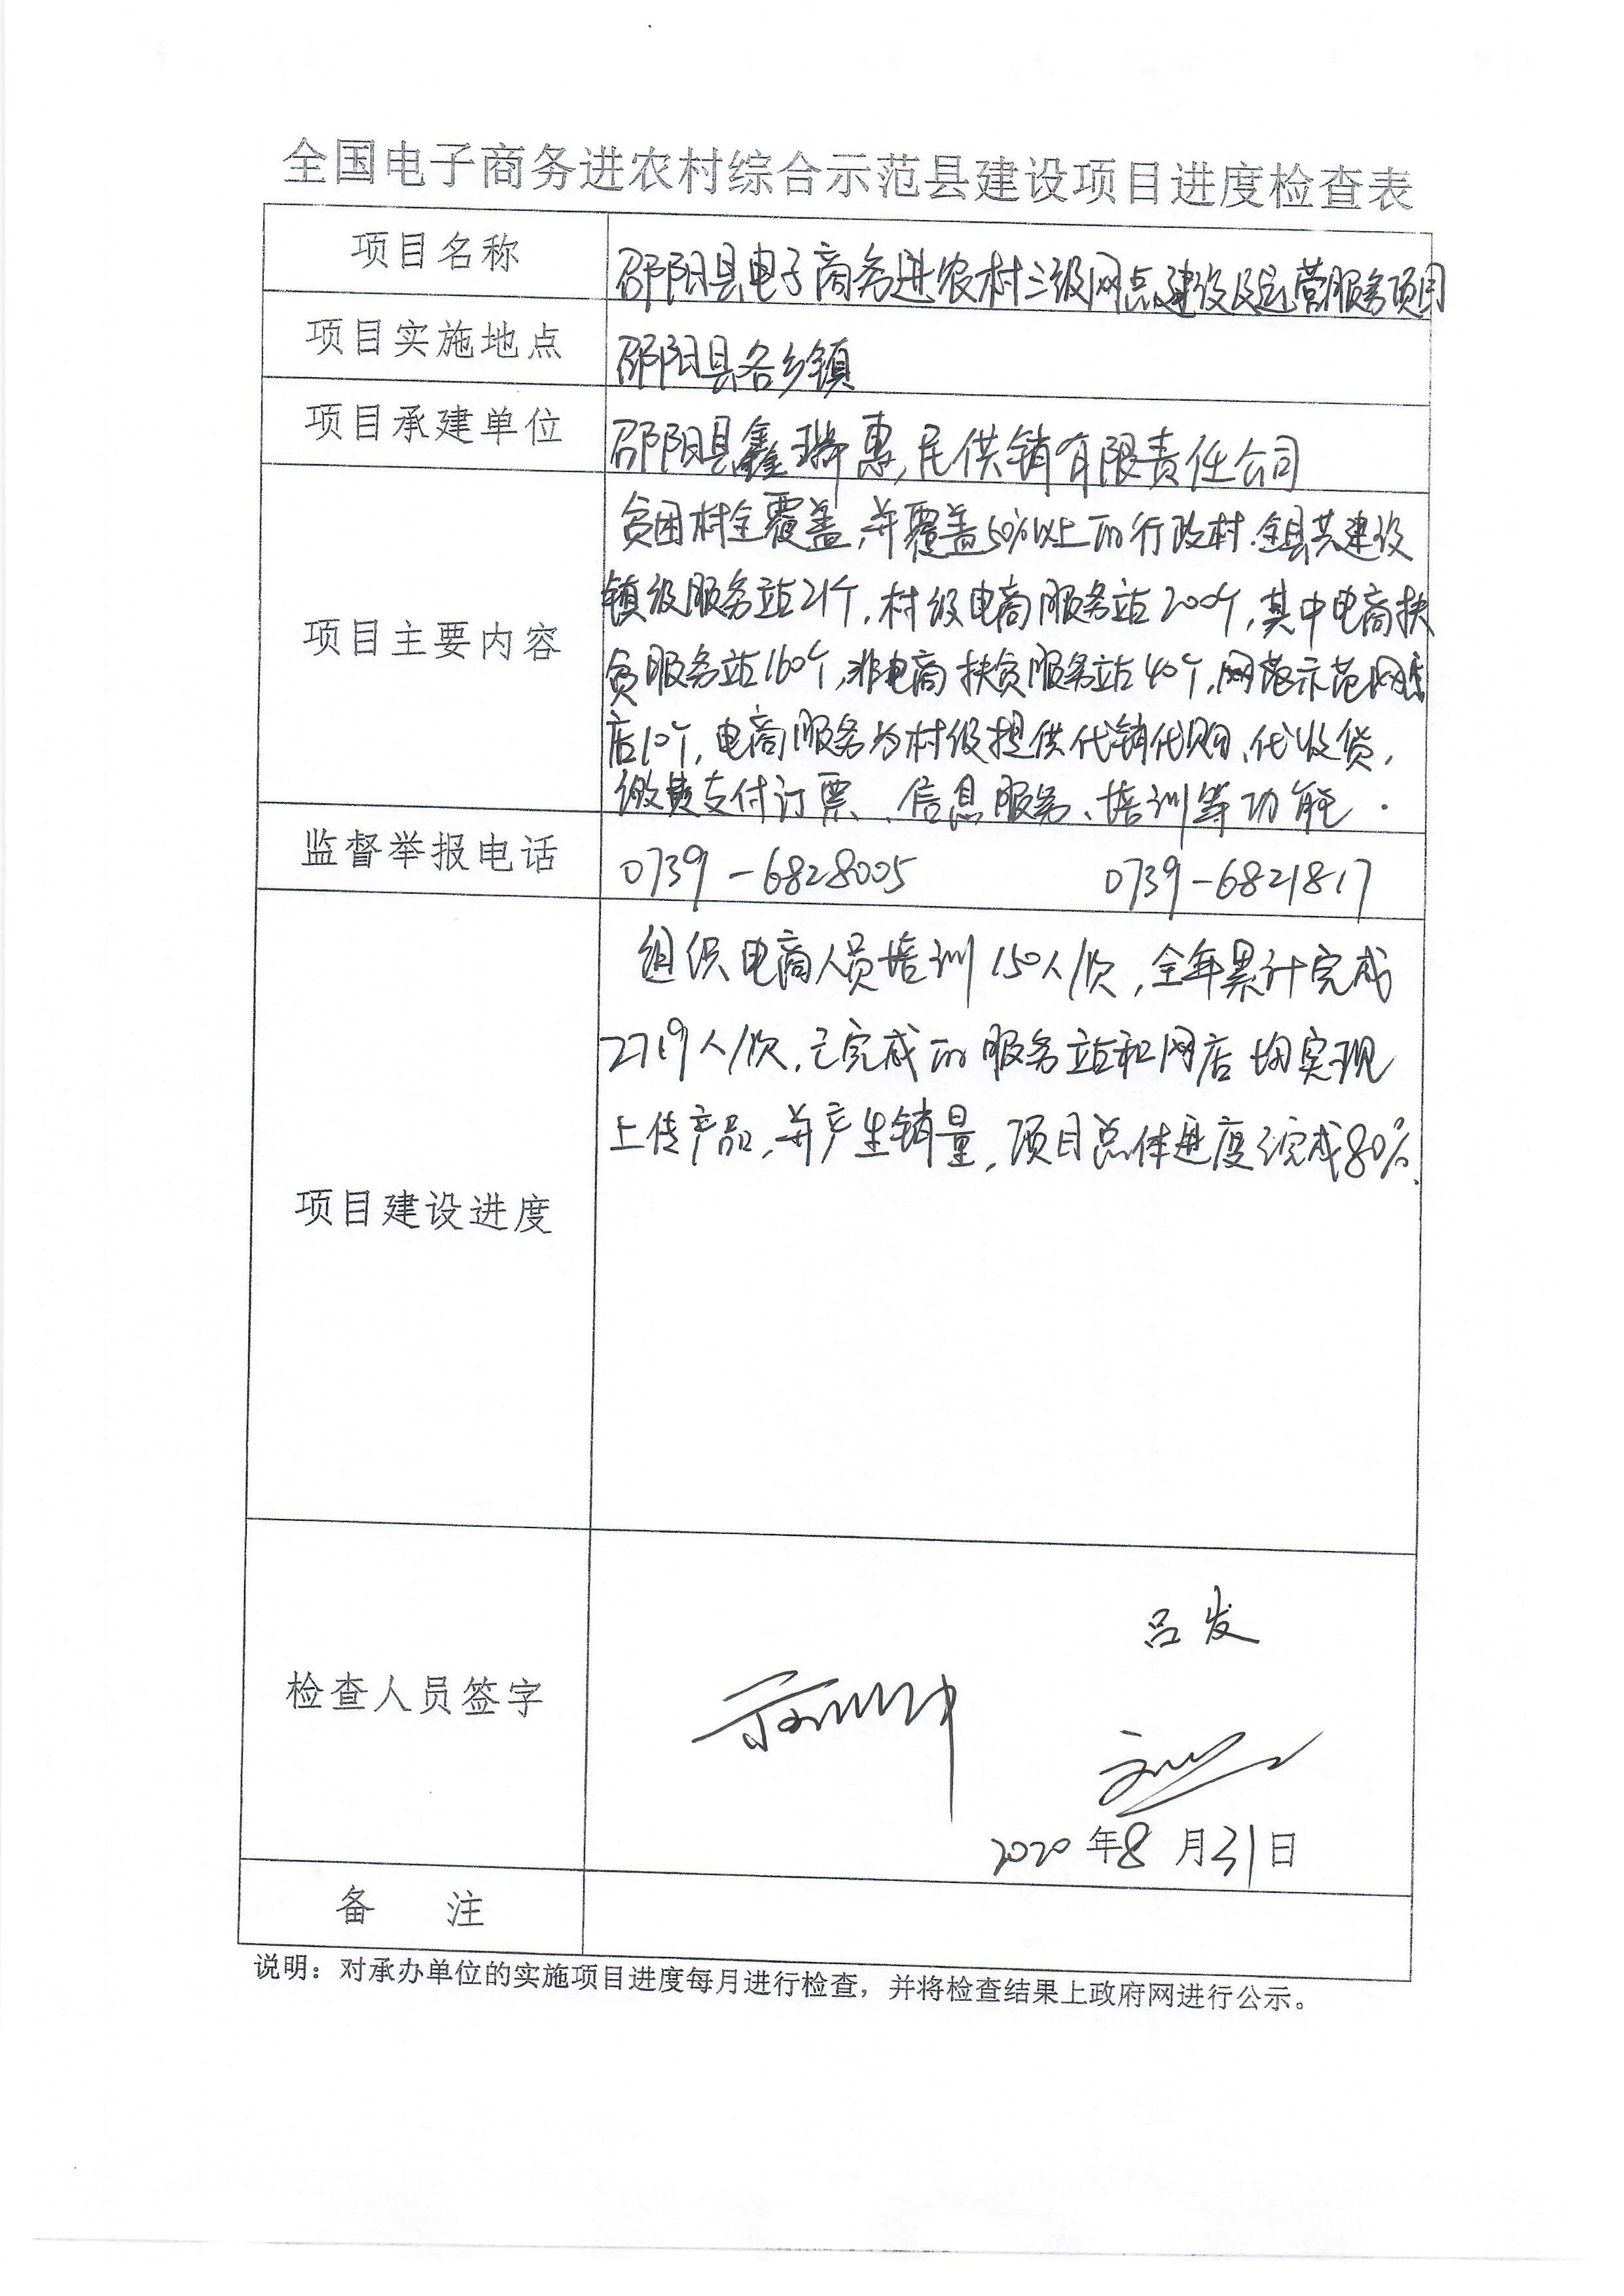 全国电子商务进农村综合示范县建设项目进度检查表
项目名称
邵阳县电子商务进农村三级网点建设及运营服务项目
项目实施地点
邵阳县各乡镇
项目承建单位
邵阳县鑫瑞惠民供销有限责任公司
项目主要内容
贫困村全覆盖,并覆盖50%以上的行政村.全县共建设
镇级服务站21个,村级电商服务站200个,其中电商扶
贫服务站160个,非电商扶贫服务站40个,示范网
店10个,电商服务为村级提供代销代购、代收货,
缴费支付订票、信息服务、培训等功能.
监督举报电话
0739-6828005 0739-6821817
项目建设进度
组织电商人员培训150人/次,全年累计完成
2719人/次.已完成的服务站和网店均实现
上传产品,并产生销量,项目总体进度完成80%.
检查人员签字
吕发
2020年8月31日
备 注
说明：对承办单位的实施项目进度每月进行检查，并将检查结果上政府网进行公示。